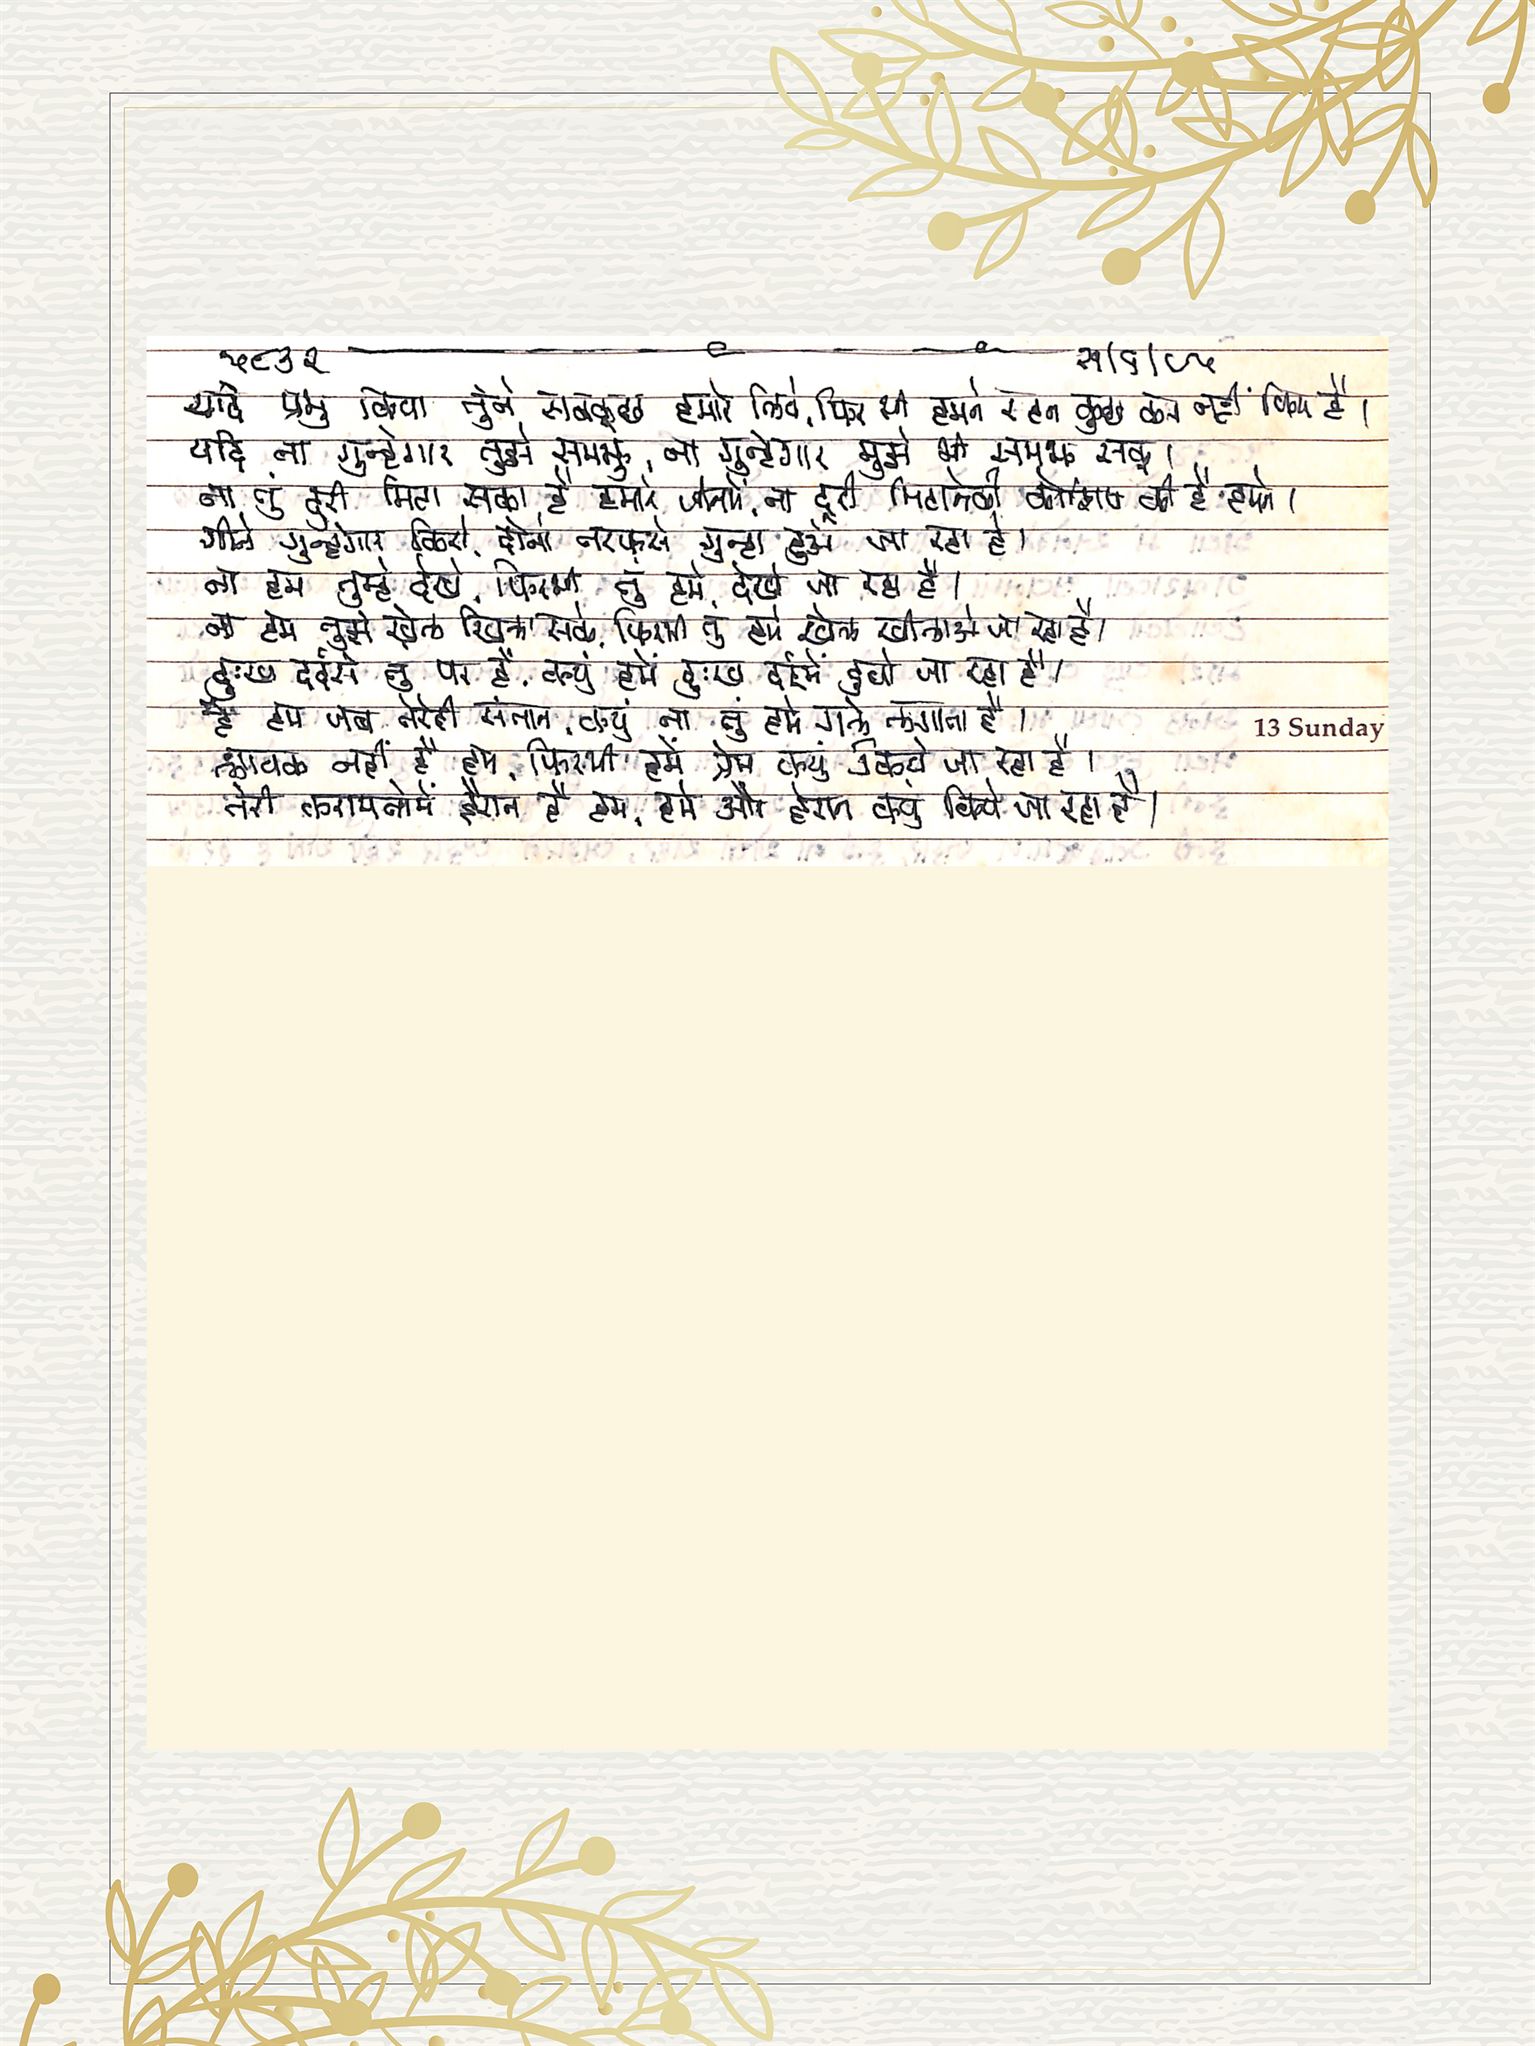 ५८३२ २५/६/८५
यदि प्रभु किया तुंने सबकुछ हमारे लिये, फिर भी हमने सहन कुछ कम नहीं किया है।
यदि ना गुन्हेगार तुझे समझु, ना गुन्हेगार मुझे भी समझ सकु।
ना तुं दुरी मिटा सका है हमारे बीचमें, ना दूरी मिटानेकी कोशिश की है हमने।
गीने गुन्हेगार किसे, दोनों तरफसे गुन्हा हुअे जा रहा है।
ना हम तुम्हे देखे, फिरभी तुं हमे देखे जा रहा है।
ना हम तुझे खेल खिला सके, फिरभी तु हमे खेल खीलाअे जा रहा है।
दुःख दर्दसे तु पर है, क्युं हमें दुःख दर्दमें डुबो जा रहा है।
है हम जब तेरेही संतान, क्युं ना तुं हमे गले लगाता है।
13 Sunday
लायक नहीं है हम, फिरभी हमें प्रेम क्युं किये जा रहा है।
तेरी करामतोमें हैरान है हम, हमे और हेरान क्युं किये जा रहा है।